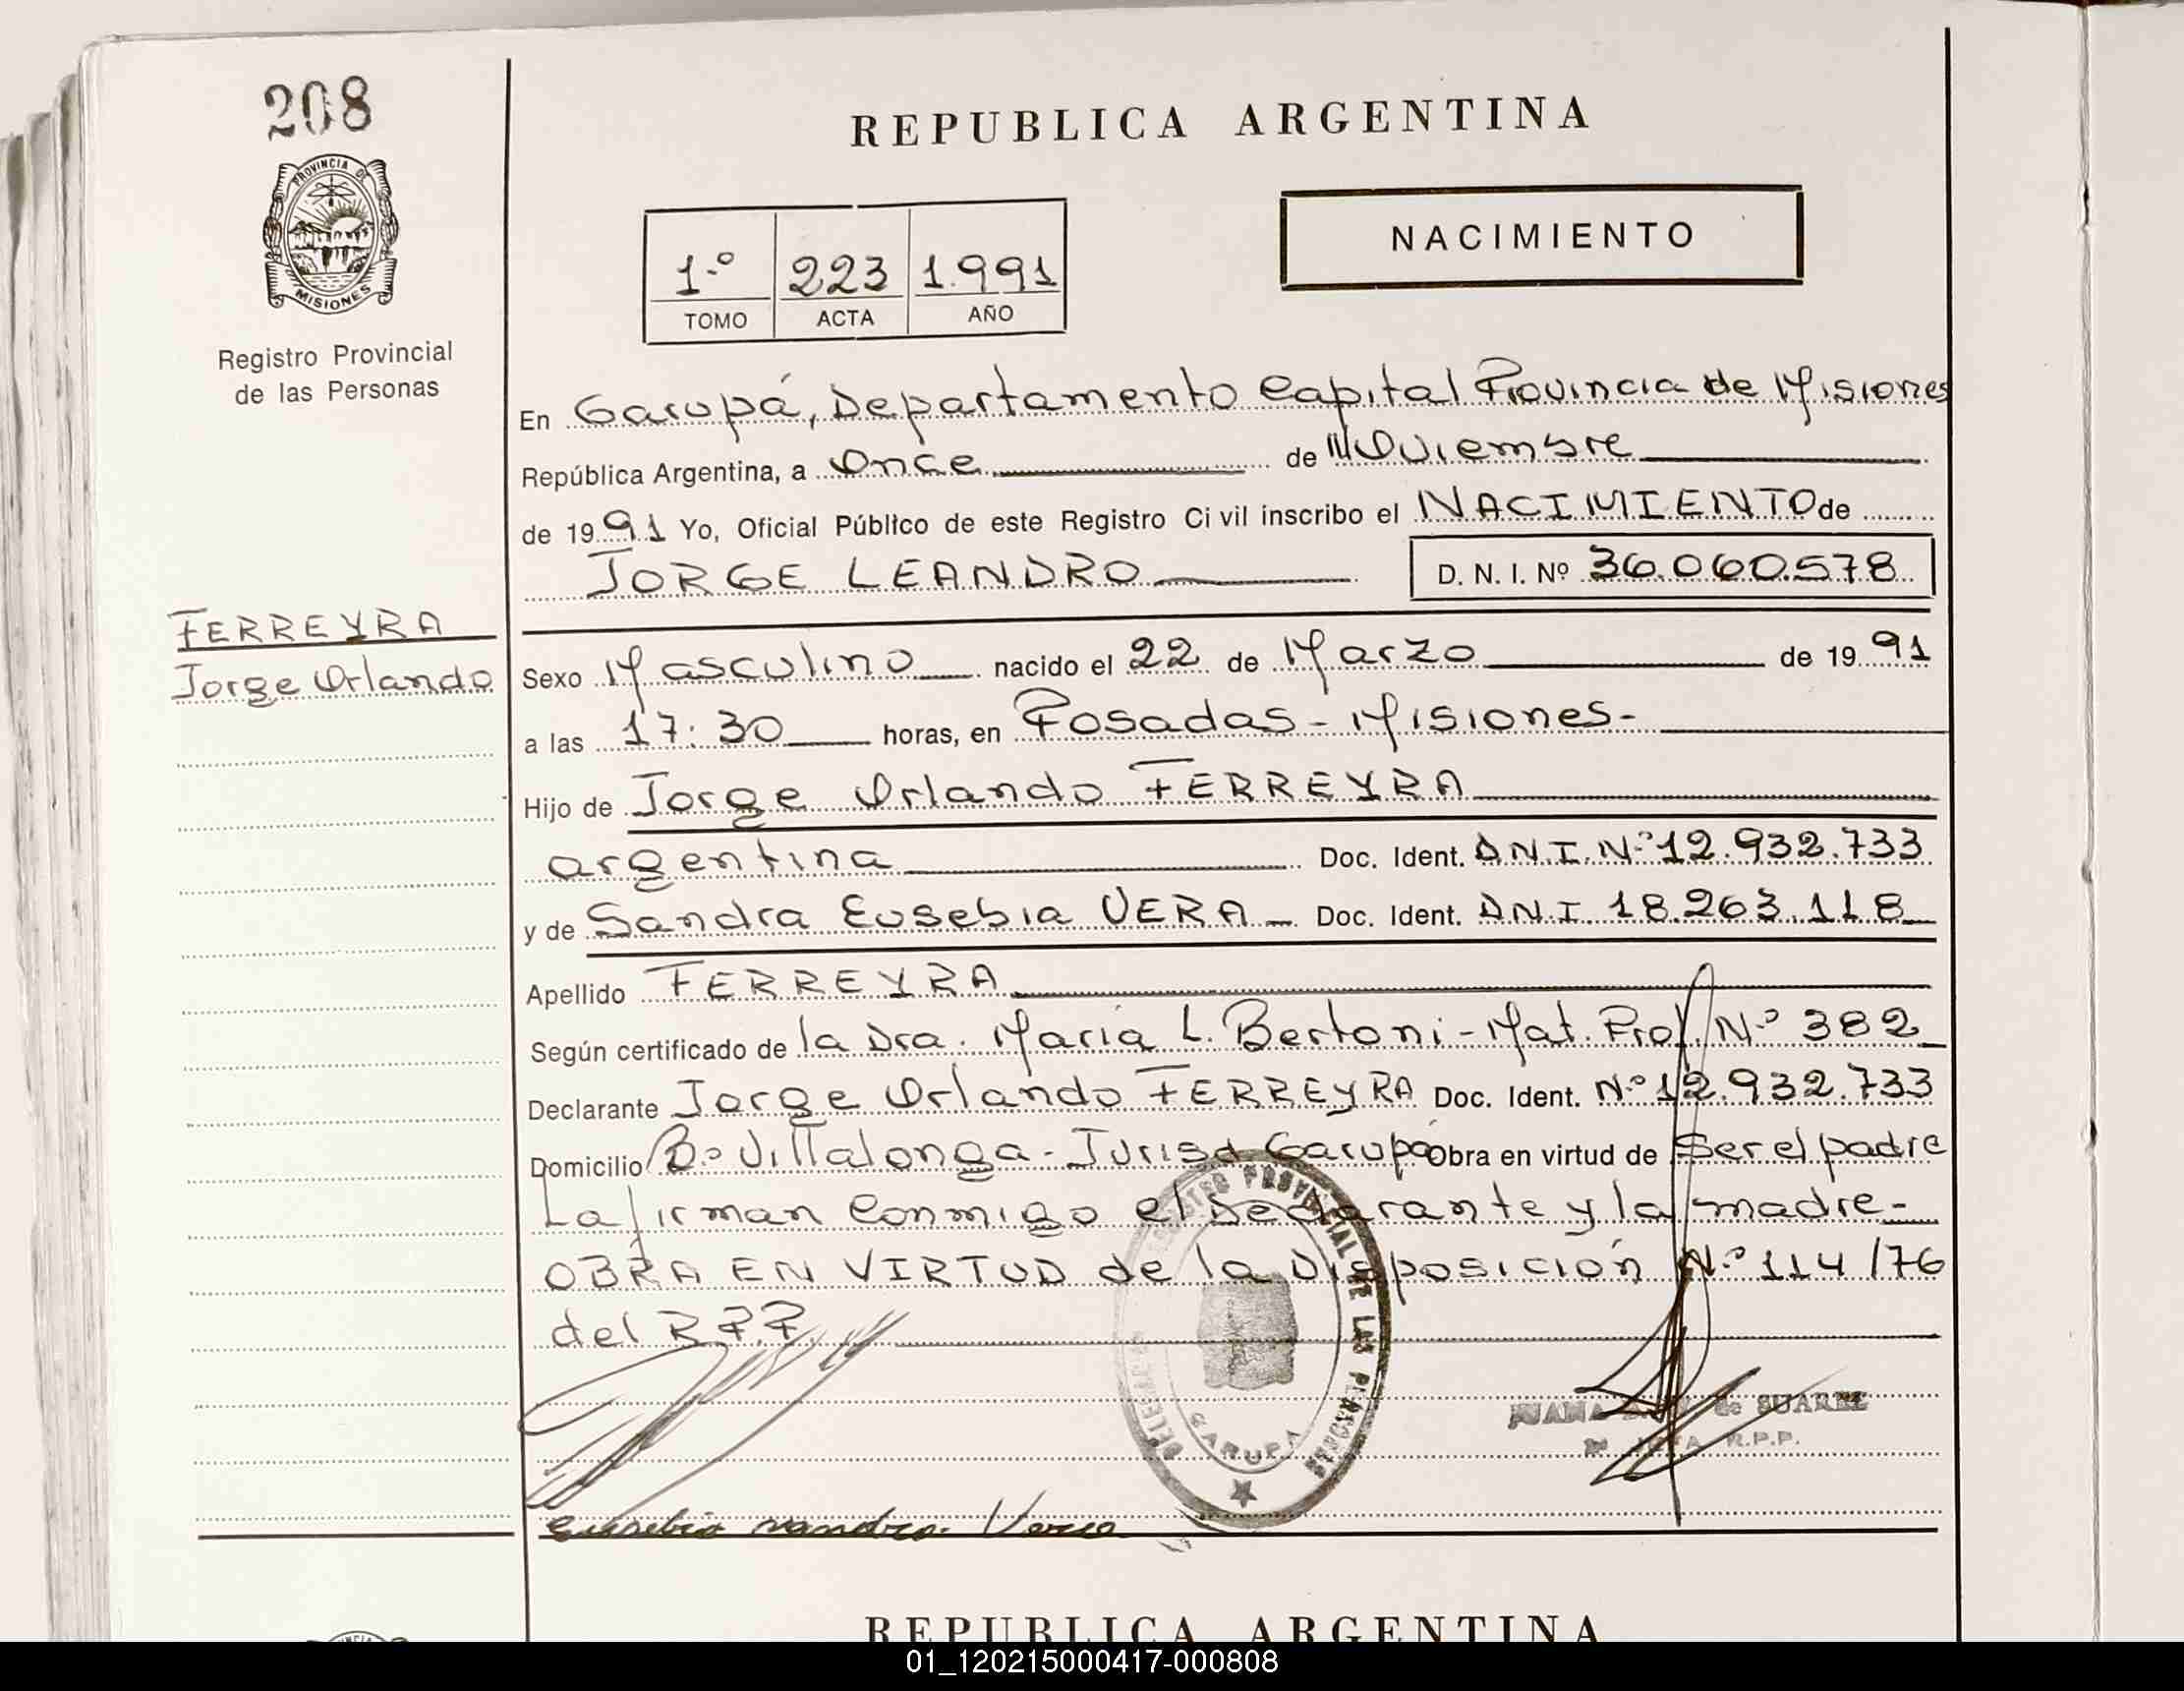 208
PROVINCIA DE
MISIONES
Registro Provincial
de las Personas
REPUBLICA ARGENTINA
NACIMIENTO
1.º 223 1.991
TOMO ACTA AÑO
En Garupá, Departamento Capital Provincia de Misiones
República Argentina, a Once de Noviembre
de 1991 Yo, Oficial Público de este Registro Civil inscribo el NACIMIENTO de
JORGE LEANDRO D. N. I. Nº 36.060.578
FERREYRA
Jorge Orlando
Sexo Masculino nacido el 22 de Marzo de 1991
a las 17:30 horas, en Posadas - Misiones-
Hijo de Jorge Orlando FERREYRA
argentina Doc. Ident. D.N.I. Nº 12.932.733
y de Sandra Eusebia VERA - Doc. Ident. D.N.I 18.263.118
Apellido FERREYRA
Según certificado de la Dra. María L. Bertoni - Mat. Prof. Nº 382
Declarante Jorge Orlando FERREYRA Doc. Ident. Nº 12.932.733
Domicilio Bº Villalonga - Jurisd Garupá Obra en virtud de Ser el padre
La firman Conmigo el Declarante y la madre-
OBRA EN VIRTUD de la Disposición Nº 114/76
del R.P.P.
REGISTRO PROVINCIAL DE LAS PERSONAS
DELEGACION
GARUPA
JUANA de SUAREZ
JEFA R.P.P.
Eusebia Sandra Vera
REPUBLICA ARGENTINA
01_120215000417-000808